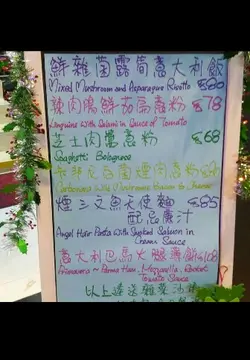 鮮雜菌露筍意大利飯 $80
Mixed Mushroom and Asparagus Risotto
辣肉腸鮮茄扁意粉 $78
Linguine with Salami in Sauce of Tomato
芝士肉醬意粉 $68
Spaghetti Bolognese
煙肉意粉
Carbonara with Mushrooms Bacon in
煙三文魚天使麵 $85
配忌廉汁
Angel Hair Pasta with Smoked Salmon in
Cream Sauce
意大利巴馬火腿薄餅 $108
Parma Ham, Mozzarella, Rocket
Tomato Sauce
以上送